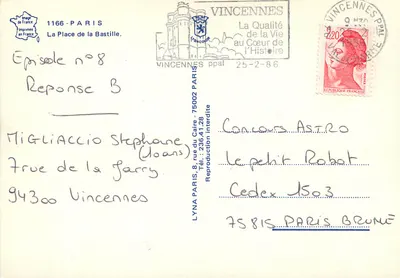 image de France
imprimée en France
1166 - PARIS
La Place de la Bastille.
Episode n°8
Reponse B
MIGLIACCIO Stephane
(10ans)
7 rue de la Jarry
94300 Vincennes
LYNA PARIS, 8, rue du Caire - 75002 PARIS
Tél.: 236.41.28
Reproduction interdite
VINCENNES
La Qualité
de la Vie
au Cœur de
l'Histoire
VINCENNES ppal
25-2-86
VINCENNES ppal
2,20
Concours ASTRO
Le petit Robot
Cedex 1503
75815 PARIS BRUNE